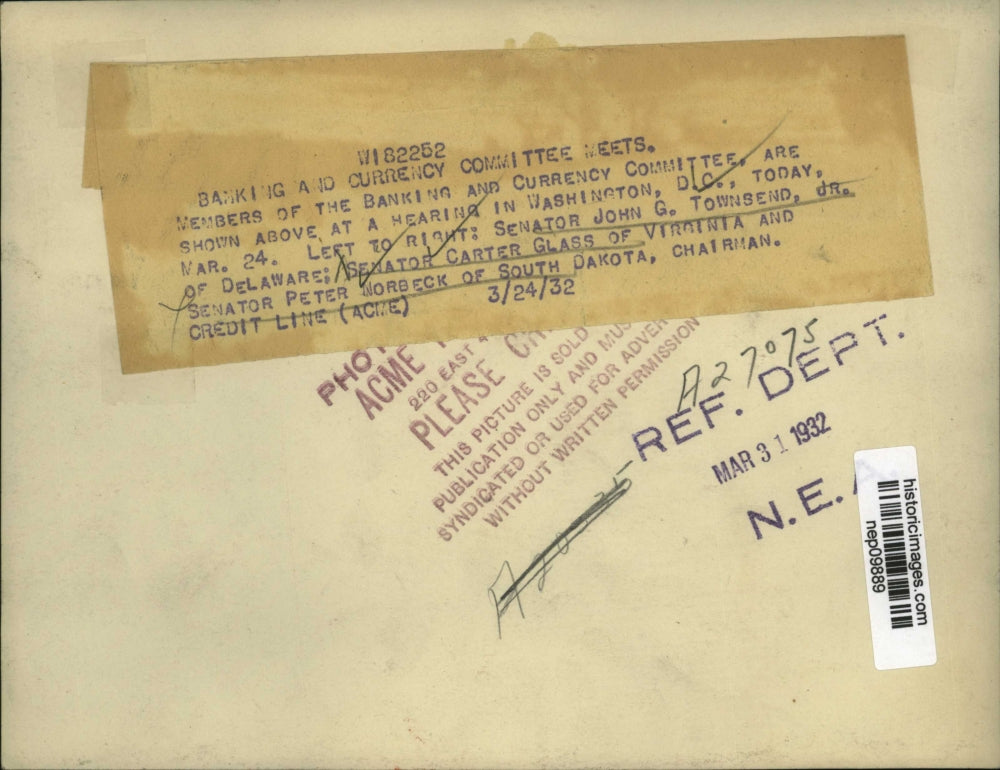 W182252
BANKING AND CURRENCY COMMITTEE MEETS.
MEMBERS OF THE BANKING AND CURRENCY COMMITTEE, ARE
SHOWN ABOVE AT A HEARING IN WASHINGTON, D.C., TODAY,
MAR. 24. LEFT TO RIGHT: SENATOR JOHN G. TOWNSEND, JR.
OF DELAWARE; SENATOR CARTER GLASS OF VIRGINIA AND
SENATOR PETER NORBECK OF SOUTH DAKOTA, CHAIRMAN.
CREDIT LINE (ACME) 3/24/32
PHOT
ACME
220 EAST 4
PLEASE CR
THIS PICTURE IS SOLD
PUBLICATION ONLY AND MUS
SYNDICATED OR USED FOR ADVER
WITHOUT WRITTEN PERMISSION
A27075
REF. DEPT.
MAR 31 1932
N.E.A
historicimages.com
nep09889